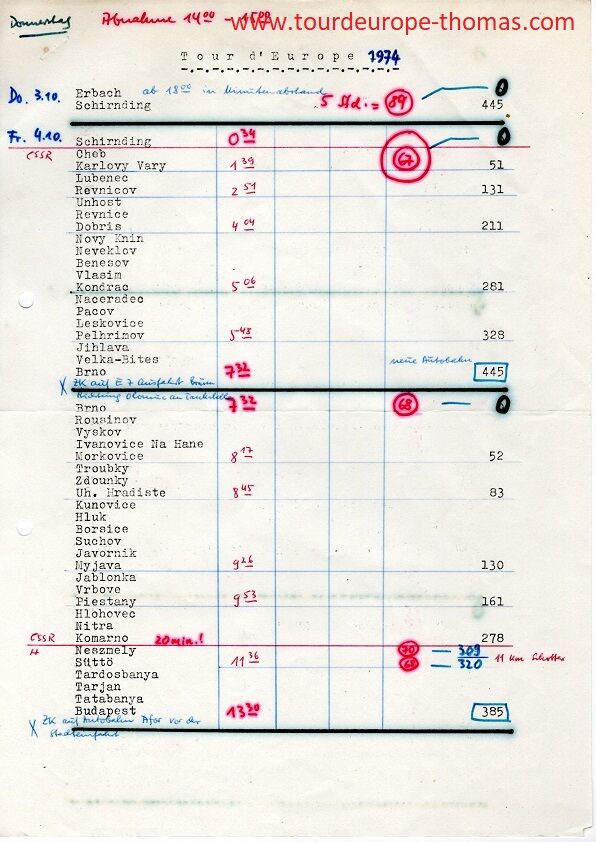 Donnerstag Abnahme 14 00 - 15 00 www.tourdeurope-thomas.com
Tour d'Europe 1974
Do. 3.10. Erbach ab 18 00 in Minutenabstand 0
Schirnding 5 Std. = 89 445
Fr. 4.10. Schirnding 0 34 0
CSSR Cheb 67
Karlovy Vary 1 39 51
Lubenec
Revnicov 2 51 131
Unhost
Revnice
Dobris 4 04 211
Novy Knin
Neveklov
Benesov
Vlasim
Kondrac 5 06 281
Naceradec
Pacov
Leskovice
Pelhrimov 5 48 328
Jihlava
Velka-Bites neue Autobahn
Brno 7 32 445
X ZK auf E 7 Ausfahrt Brünn
Richtung Olomuc an Tankstelle
Brno 7 32 68 0
Rousinov
Vyskov
Ivanovice Na Hane
Morkovice 8 17 52
Troubky
Zdounky
Uh. Hradiste 8 45 83
Kunovice
Hluk
Borsice
Suchov
Javornik
Myjava 9 26 130
Jablonka
Vrbove
Piestany 9 53 161
Hlohovec
Nitra
CSSR Komarno 20 min.! 278
H Neszmely 70 309
Süttö 11 36 320 11 km Schotter
Tardosbanya
Tarjan
Tatabanya
Budapest 13 30 385
X ZK auf Autobahn Afor vor der
Stadteinfahrt